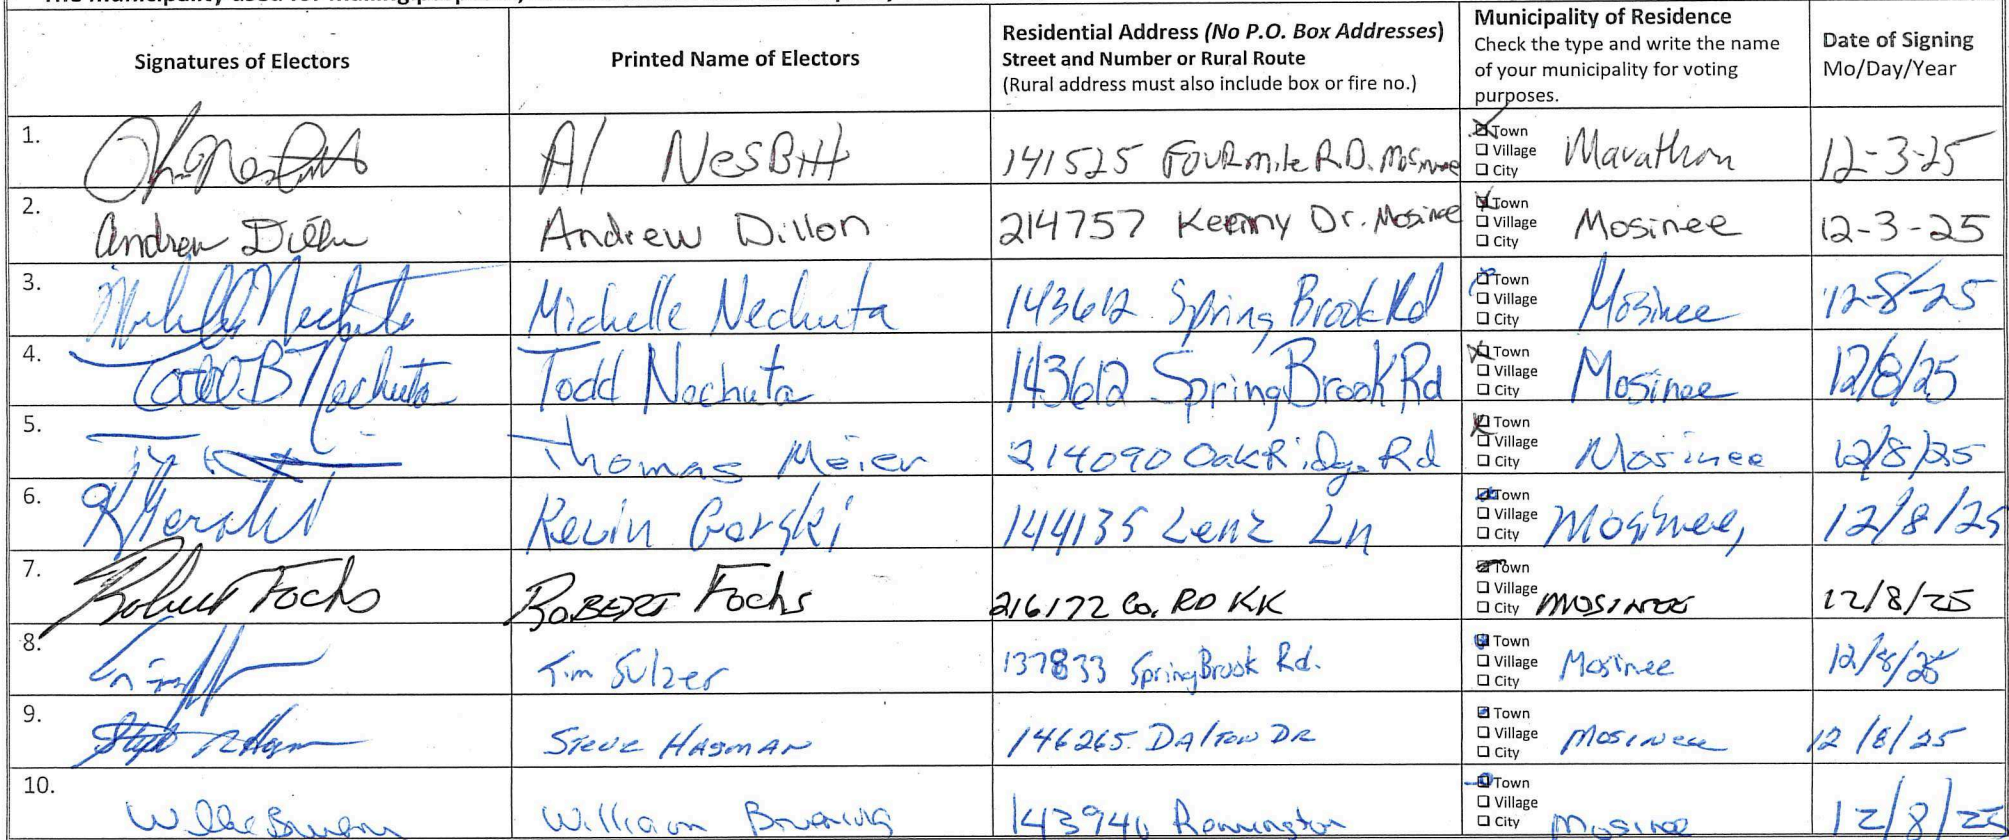 Signatures of Electors
Printed Name of Electors
Residential Address (No P.O. Box Addresses)
Street and Number or Rural Route
(Rural address must also include box or fire no.)
Municipality of Residence
Check the type and write the name
of your municipality for voting
purposes.
Date of Signing
Mo/Day/Year
1. Al NESBitt 141525 FOURmile RD. Mosinee Town Village City Marathon 12-3-25
2. Andrew Dillon Andrew Dillon 214757 Kenny Dr. Mosinee Town Village City Mosinee 12-3-25
3. Michelle Nechuta Michelle Nechuta 143612 Spring Brook Rd Town Village City Mosinee 12-8-25
4. Todd B Nechuta Todd Nechuta 143612 Spring Brook Rd Town Village City Mosinee 12/8/25
5. Thomas Meier 214090 Oak Ridge Rd Town Village City Mosinee 12/8/25
6. Kevin Gorski 144135 Lenz Ln Town Village City Mosinee, 12/8/25
7. Robert Fochs ROBERT Fochs 216172 Co. RD KK Town Village City MOSINEE 12/8/25
8. Tim Sulzer 137833 SpringBrook Rd. Town Village City Mosinee 12/8/25
9. STEVE HAGMAN 146265 DALTON DR Town Village City MOSINEE 12/8/25
10. William 143940 Town Village City Mosinee 12/8/25